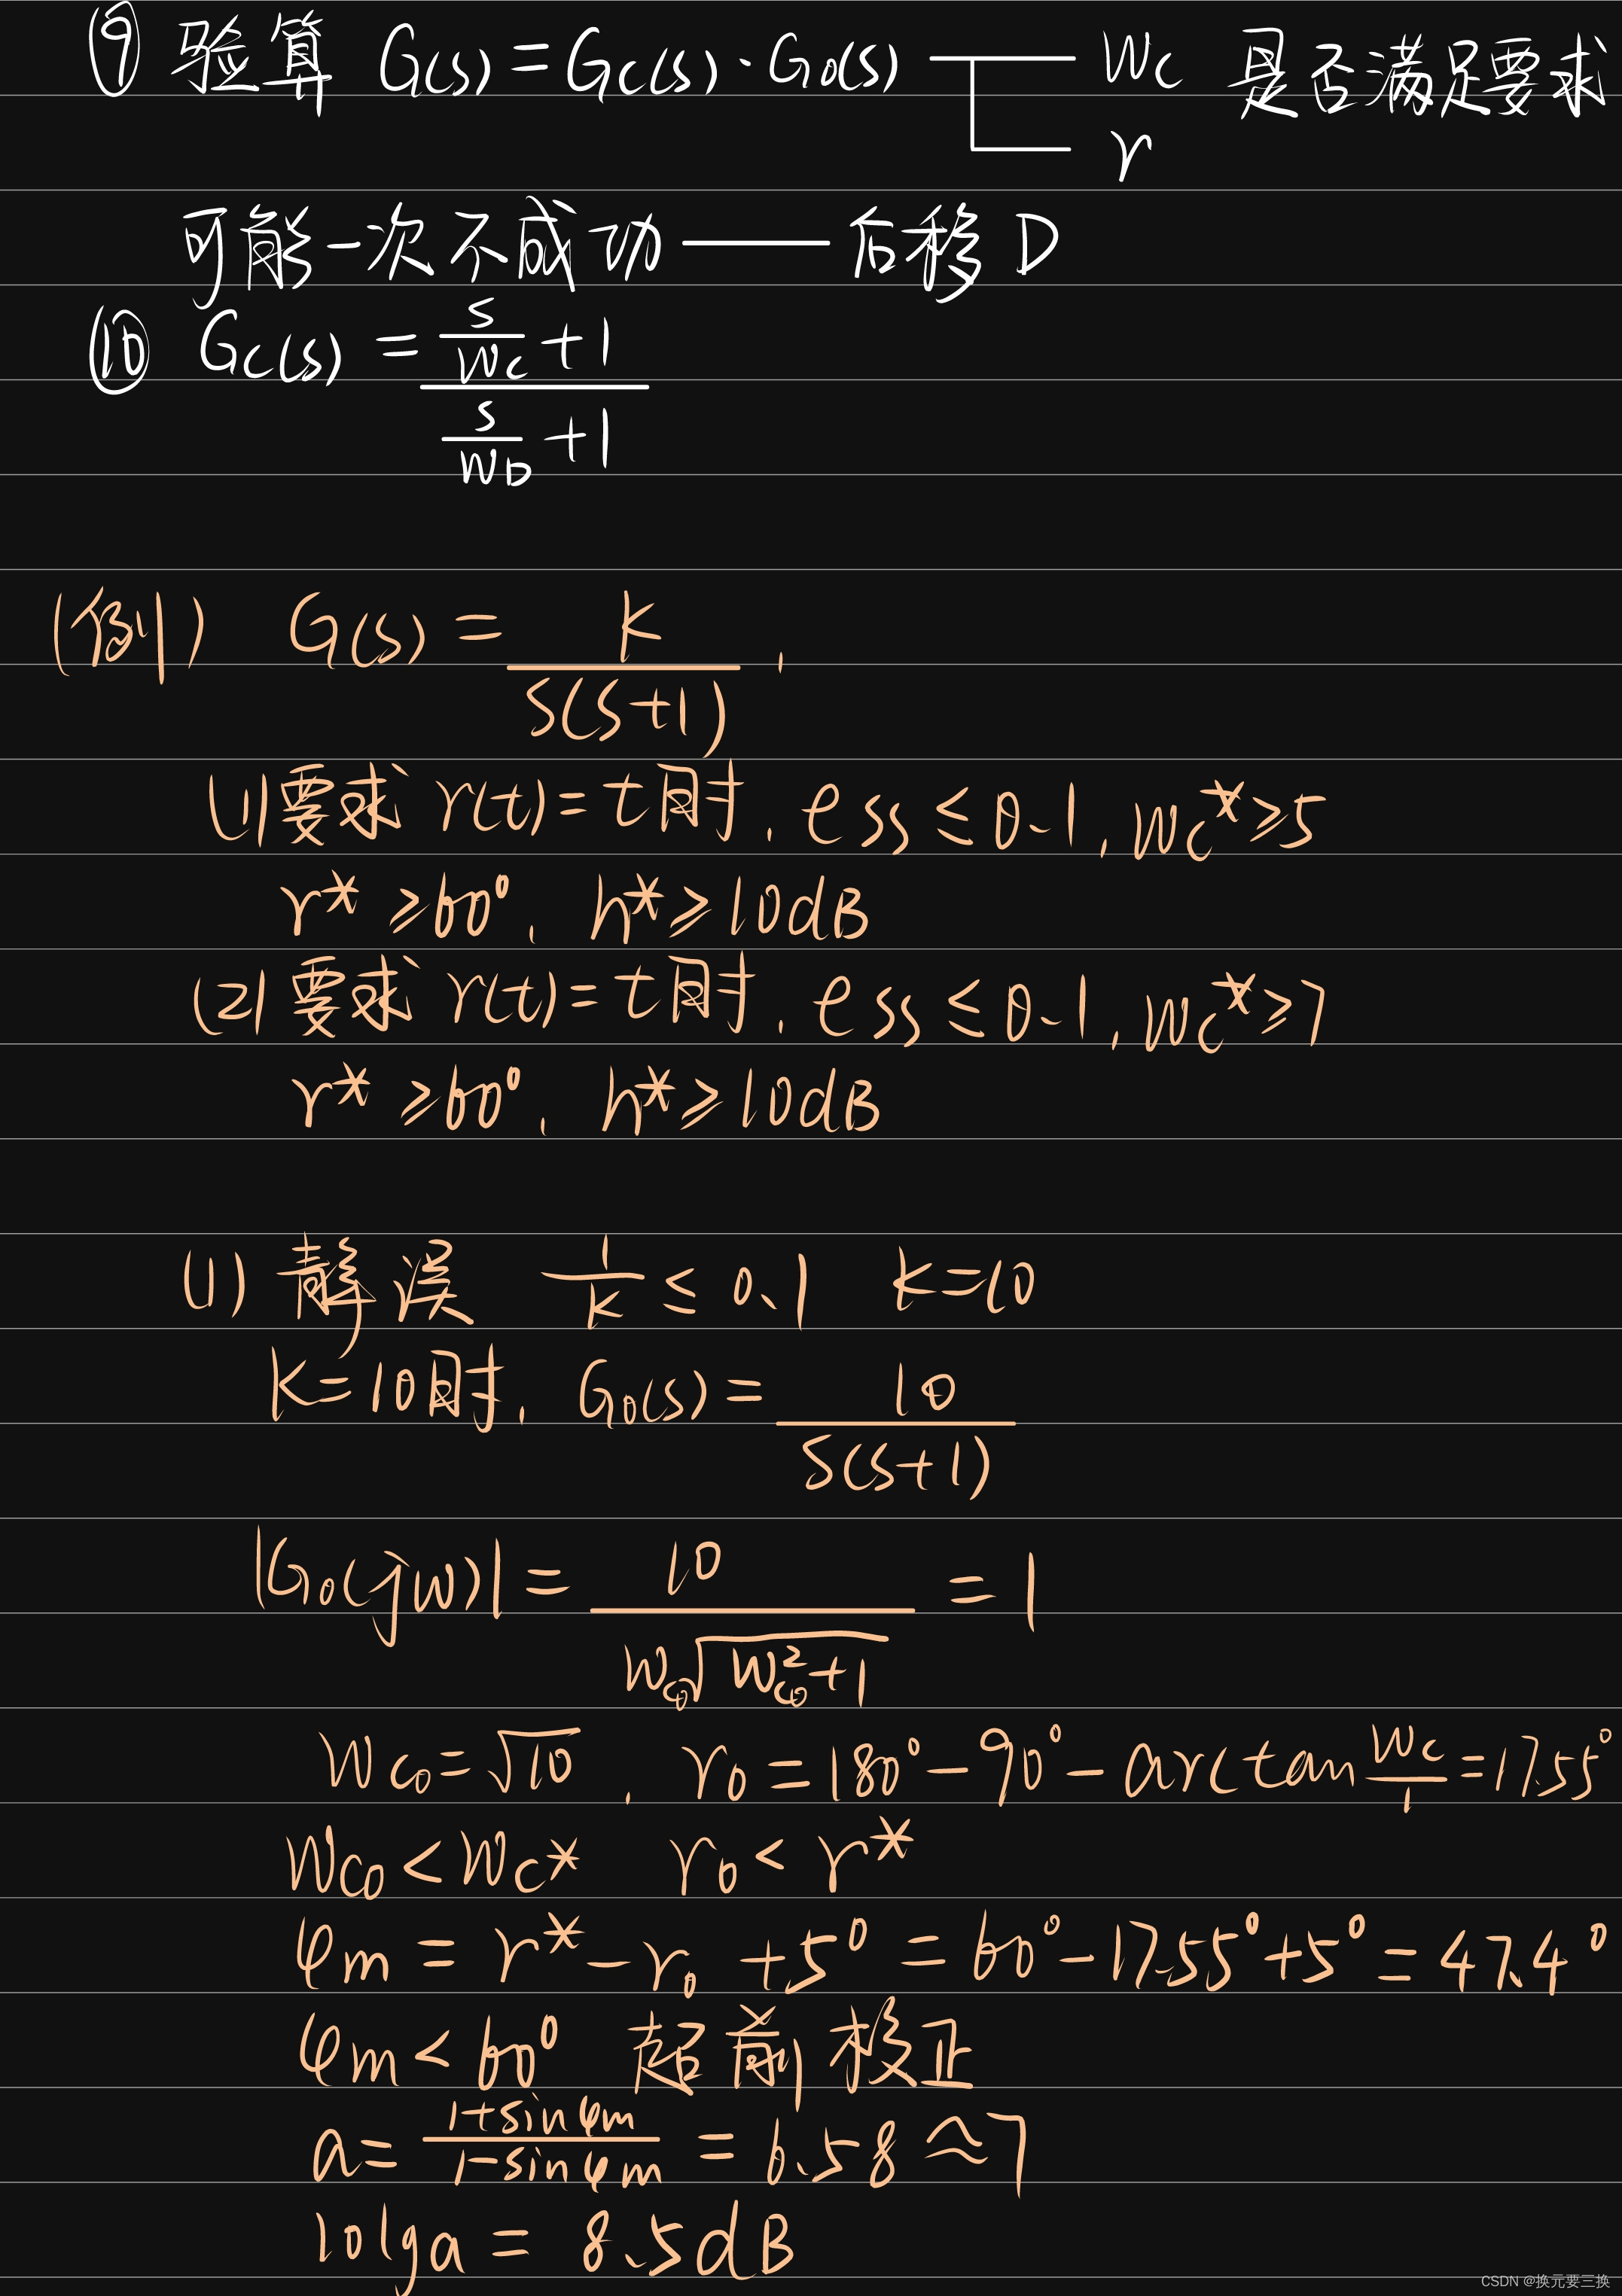 ⑨ 验算 G(s)=Gc(s)·G₀(s) — Wc 是否满足要求
r
可能一次不成功——后移D
⑩ Gc(s) = (s/Wc + 1) / (s/WD + 1)
(例) G(s) = k / S(S+1) ,
(1) 要求 r(t)=t时, ess ≤ 0.1, Wc* ≥ 5
r* ≥ 60°, h* ≥ 10dB
(2) 要求 r(t)=t时, ess ≤ 0.1, Wc* ≥ 7
r* ≥ 60°, h* ≥ 10dB
(1) 静误 1/k ≤ 0.1 k=10
K=10时, G₀(s) = 10 / S(S+1)
|G₀(jw)| = 10 / (Wc₀√(Wc₀²+1)) = 1
Wc₀ = √10 , r₀ = 180° - 90° - arctan Wc/1 = 17.55°
Wc₀ < Wc* r₀ < r*
φm = r* - r₀ + 5° = 60° - 17.55° + 5° = 47.4°
φm < 60° 超前校正
a = (1+sinφm) / (1-sinφm) = 6.58 ≈ 7
10lga = 8.5dB
CSDN @换元要三换